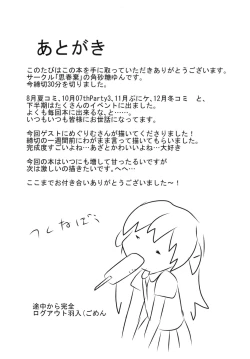 あとがき
このたびはこの本を手に取っていただきありがとうございます。
サークル「思春巣」の角砂糖ゆんです。
今締切30分を切りました。
8月夏コミ、10月07thParty3、11月ぷにケ、12月冬コミ と、
下半期はたくさんのイベントに出ました。
よくも毎回本に出来るな、と……。
いつもいつも皆様にお世話になってます。
今回ゲストにめぐりむさんが描いてくださりました！
締切の一週間前にわがまま言って描いてもらいました。
完成度すごいよね…あざとかわいいよね…大好き
今回の本はいつにも増して甘ったるいですが
次は激しいの描きたいです、へへ…
ここまでお付き合いありがとうございました～！
つくねば…
途中から完全
ログアウト羽入（ごめん